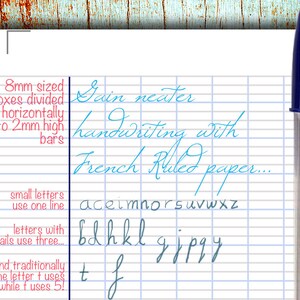 8mm sized
oxes divided
horizontally
to 2mm high
bars
Gain neater
handwriting with
French Ruled paper...
small letters
use one line
aceimnorsuvwxz
letters with
ails use three...
bdhkl gjpqy
nd traditionally
he letter t uses
while f uses 5!
t f